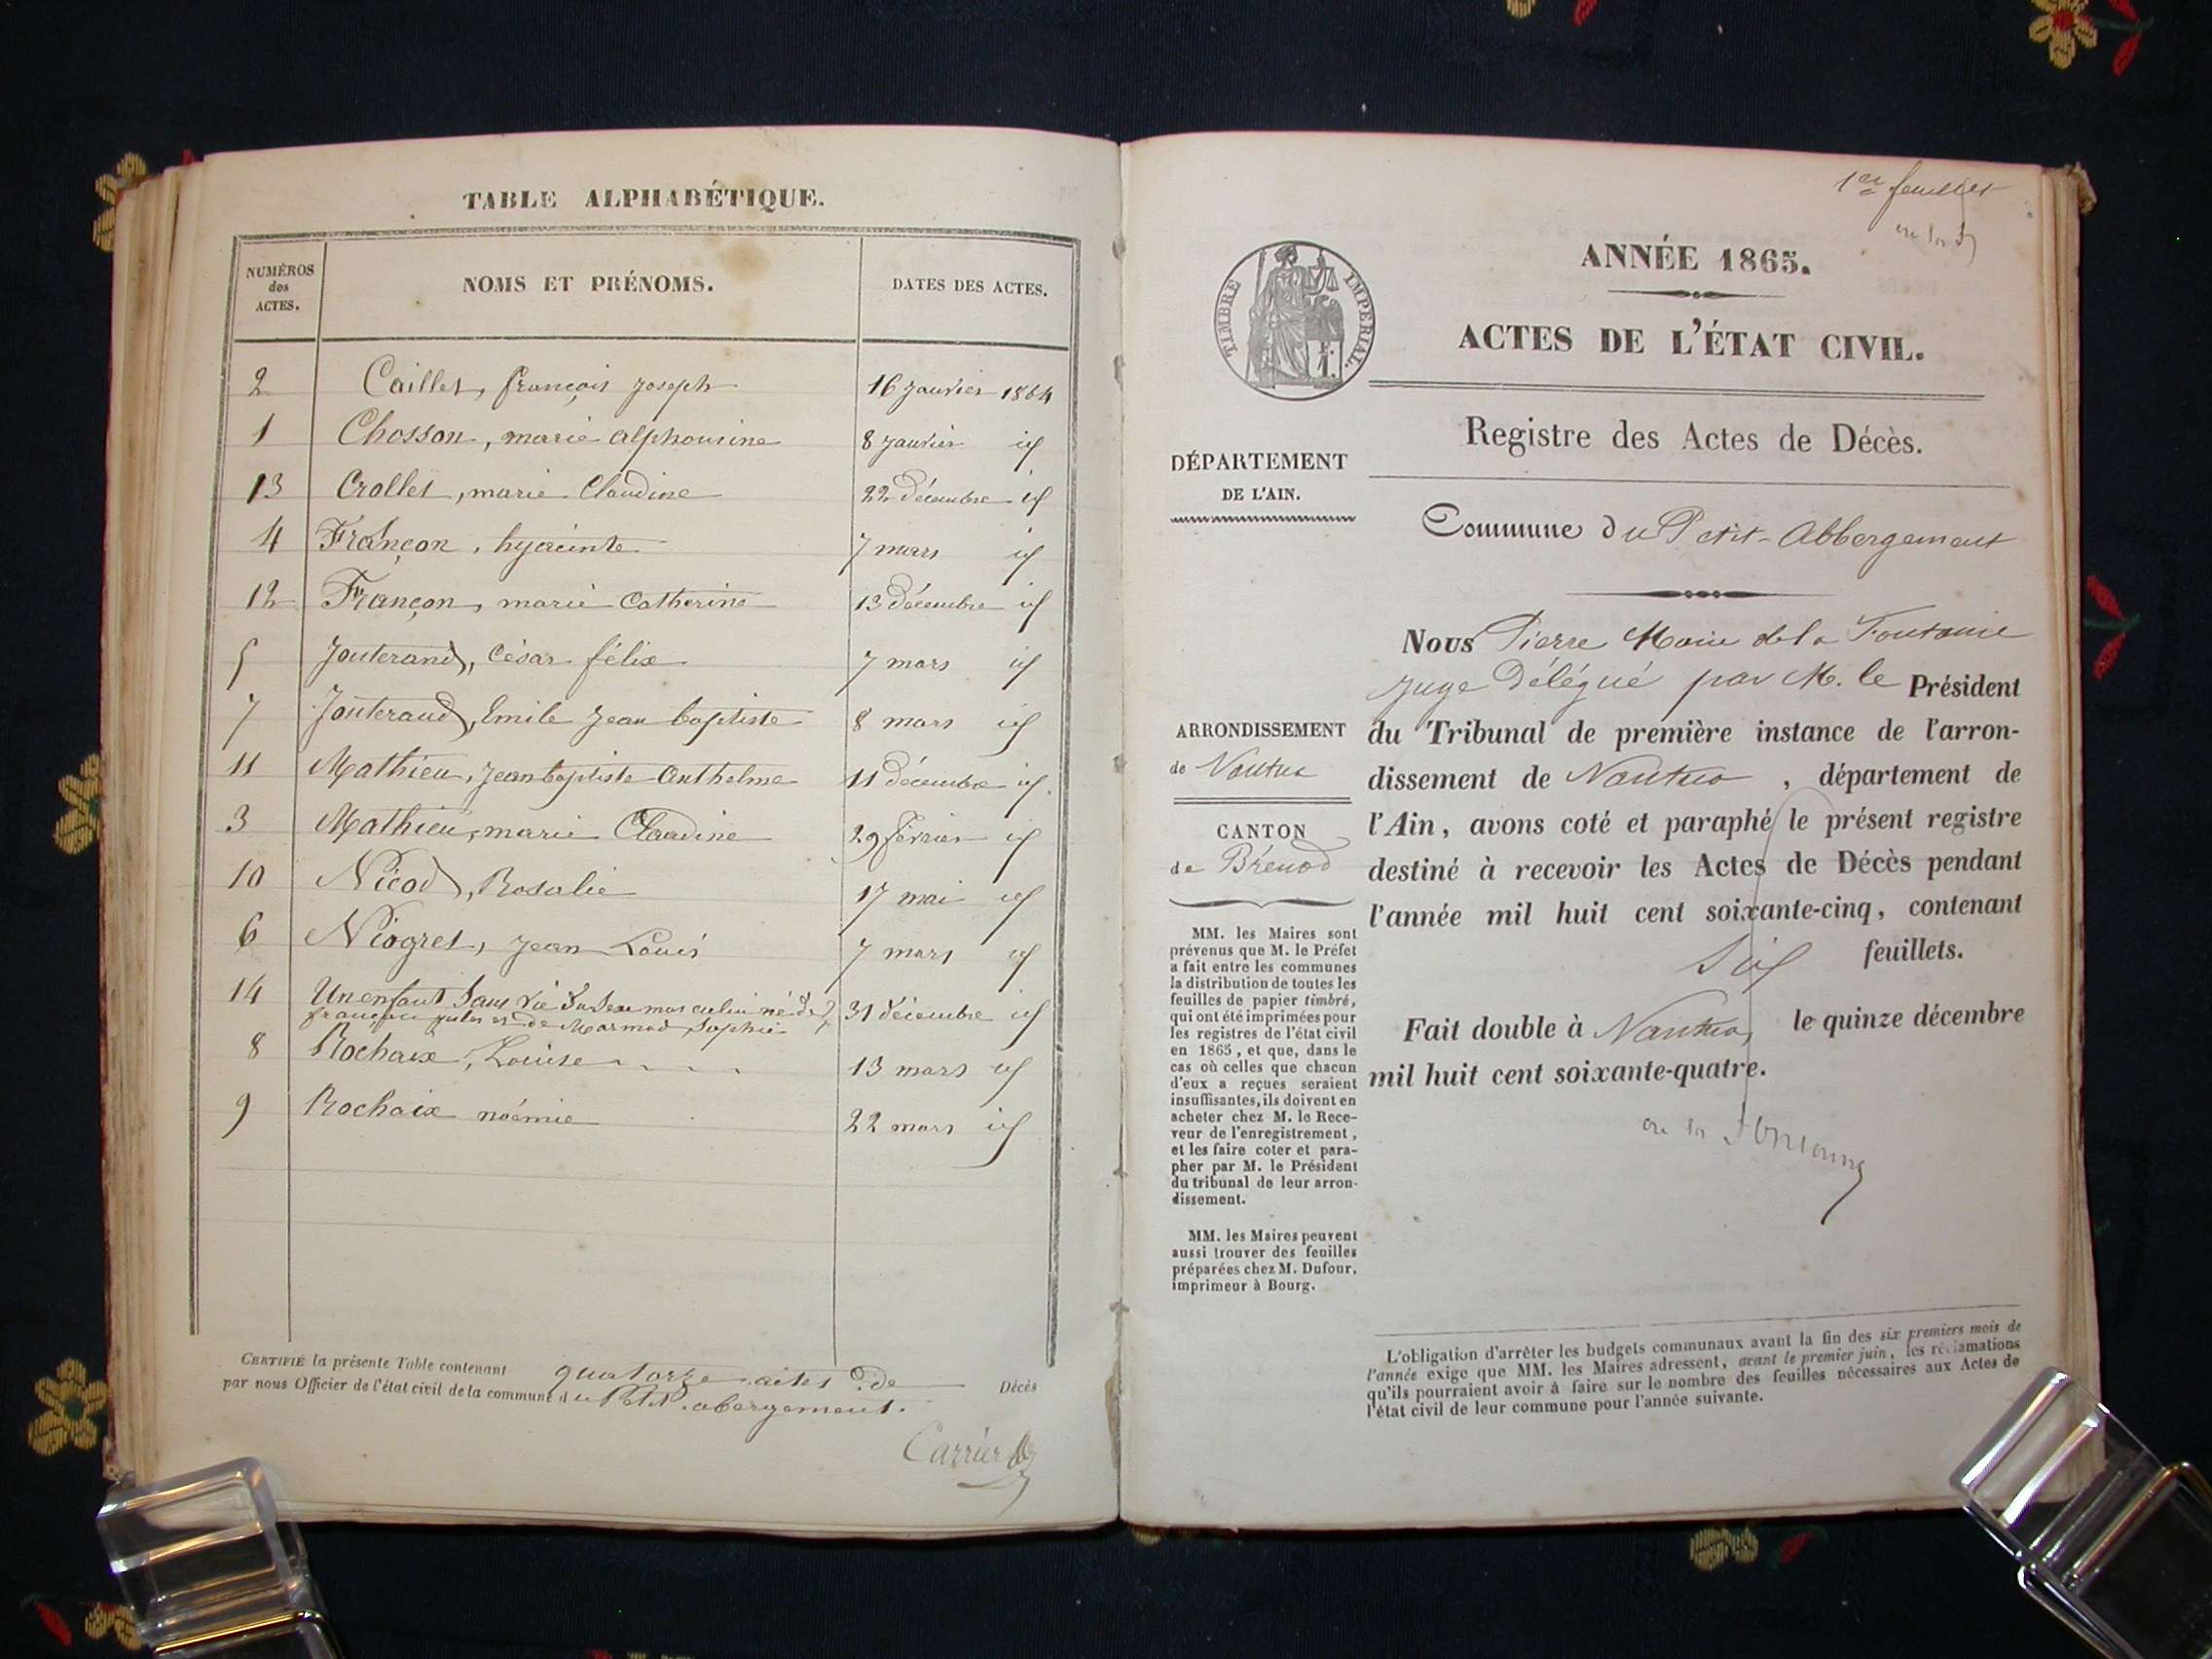 TABLE ALPHABÉTIQUE.
NUMÉROS des ACTES.
NOMS ET PRÉNOMS.
DATES DES ACTES.
2 Caillet, françois Joseph 16 Janvier 1864
1 Chosson, marie alphonsine 8 Janvier id
13 Crollet, marie Claudine 22 décembre id
4 Françon, hyacinte 7 mars id
12 Françon, marie Catherine 13 décembre id
5 Jouterand, César félix 7 mars id
7 Jouterand, Emile Jean baptiste 8 mars id
11 Mathieu, Jean baptiste Anthelme 11 décembre id.
3 Mathieu, marie Claudine 29 février id
10 Nicod, Rosalie 17 mai id
6 Niogret, Jean Louis 7 mars id
14 Un enfant Sans vie du Sexe masculin né de 31 décembre id
françois et de Marmod Sophie
8 Rochaix, Louise 13 mars id
9 Rochaix noémie 22 mars id
CERTIFIÉ la présente Table contenant quatorze actes de Décès
par nous Officier de l'état civil de la commune du Petit abergement.
Carrier
1er feuillet
TIMBRE IMPERIAL.
ANNÉE 1865.
ACTES DE L'ÉTAT CIVIL.
Registre des Actes de Décès.
DÉPARTEMENT
DE L'AIN.
Commune du Petit-Abbergement
ARRONDISSEMENT
de Nantua
CANTON
de Brénod
MM. les Maires sont
prévenus que M. le Préfet
a fait entre les communes
la distribution de toutes les
feuilles de papier timbré,
qui ont été imprimées pour
les registres de l'état civil
en 1865, et que, dans le
cas où celles que chacun
d'eux a reçues seraient
insuffisantes, ils doivent en
acheter chez M. le Rece-
veur de l'enregistrement,
et les faire coter et para-
pher par M. le Président
du tribunal de leur arron-
dissement.
MM. les Maires peuvent
aussi trouver des feuilles
préparées chez M. Dufour,
imprimeur à Bourg.
Nous Pierre Marie de la Fontaine
Juge délégué par M. le Président
du Tribunal de première instance de l'arron-
dissement de Nantua, département de
l'Ain, avons coté et paraphé le présent registre
destiné à recevoir les Actes de Décès pendant
l'année mil huit cent soixante-cinq, contenant
Six feuillets.
Fait double à Nantua, le quinze décembre
mil huit cent soixante-quatre.
L'obligation d'arrêter les budgets communaux avant la fin des six premiers mois de
l'année exige que MM. les Maires adressent, avant le premier juin, les réclamations
qu'ils pourraient avoir à faire sur le nombre des feuilles nécessaires aux Actes de
l'état civil de leur commune pour l'année suivante.